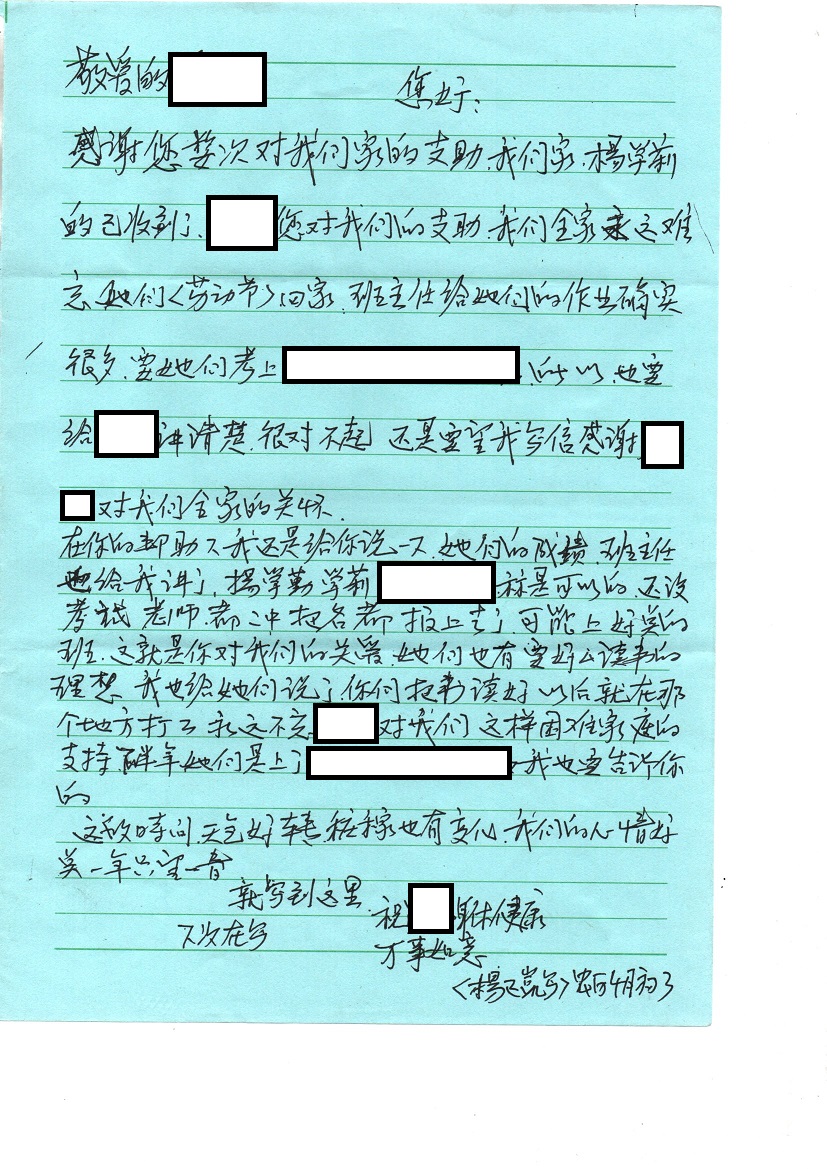 敬爱的 您好:
感谢您娄次对我们家的支助.我们家.楊学莉
的已收到了. 您对我们的支助.我们全家永远难
忘.她们<劳动节>回家.班主任给她们的作业确实
很多.要她们考上 .所以.也要
给 讲清楚.很对不起.还是要望我写信感谢
对我们全家的关怀.
在你的邦助下我还是给你说一下.她们的成绩.班主任
也给我讲了.楊学勤学莉 标是可以的.还没
考试老师.都 把名都报上去了可能上好点的
班.这就是你对我们的关爱.她们也有要好么读书的
理想.我也给她们说了你们把书读好以后就在那
个地方打工永远不忘 对我们这样困难家庭的
支持. 年她们是上了 我也要告诉你
的
这段時间.天气好转.桩稼也有变化.我们的心情好
点一年只望一春
就写到这里.
祝 身体健康
下次在写
万事如意
<楊 凯写>农历4月初3